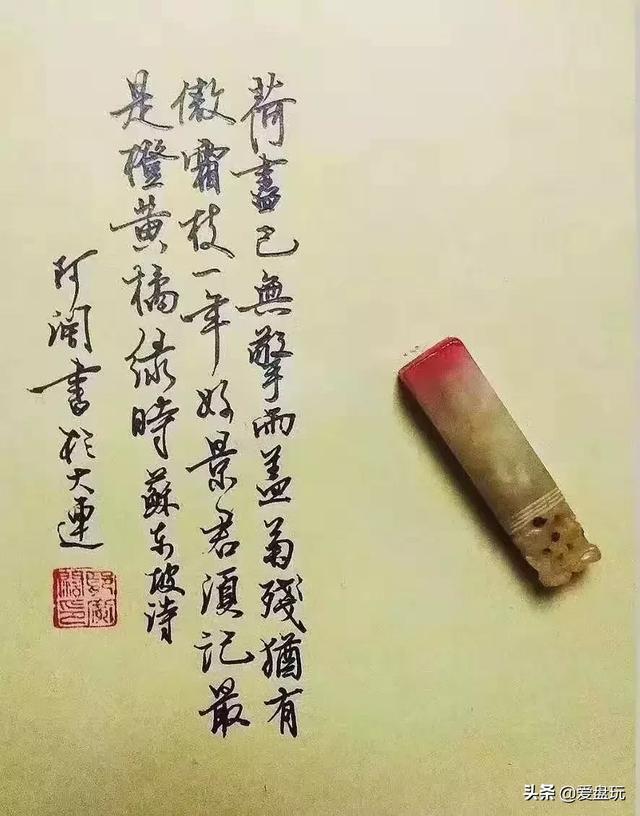 荷盡已無擎雨蓋菊殘猶有
傲霜枝一年好景君須記最
是橙黃橘綠時蘇東坡詩
阿閣書於大連
头条 @爱盘玩